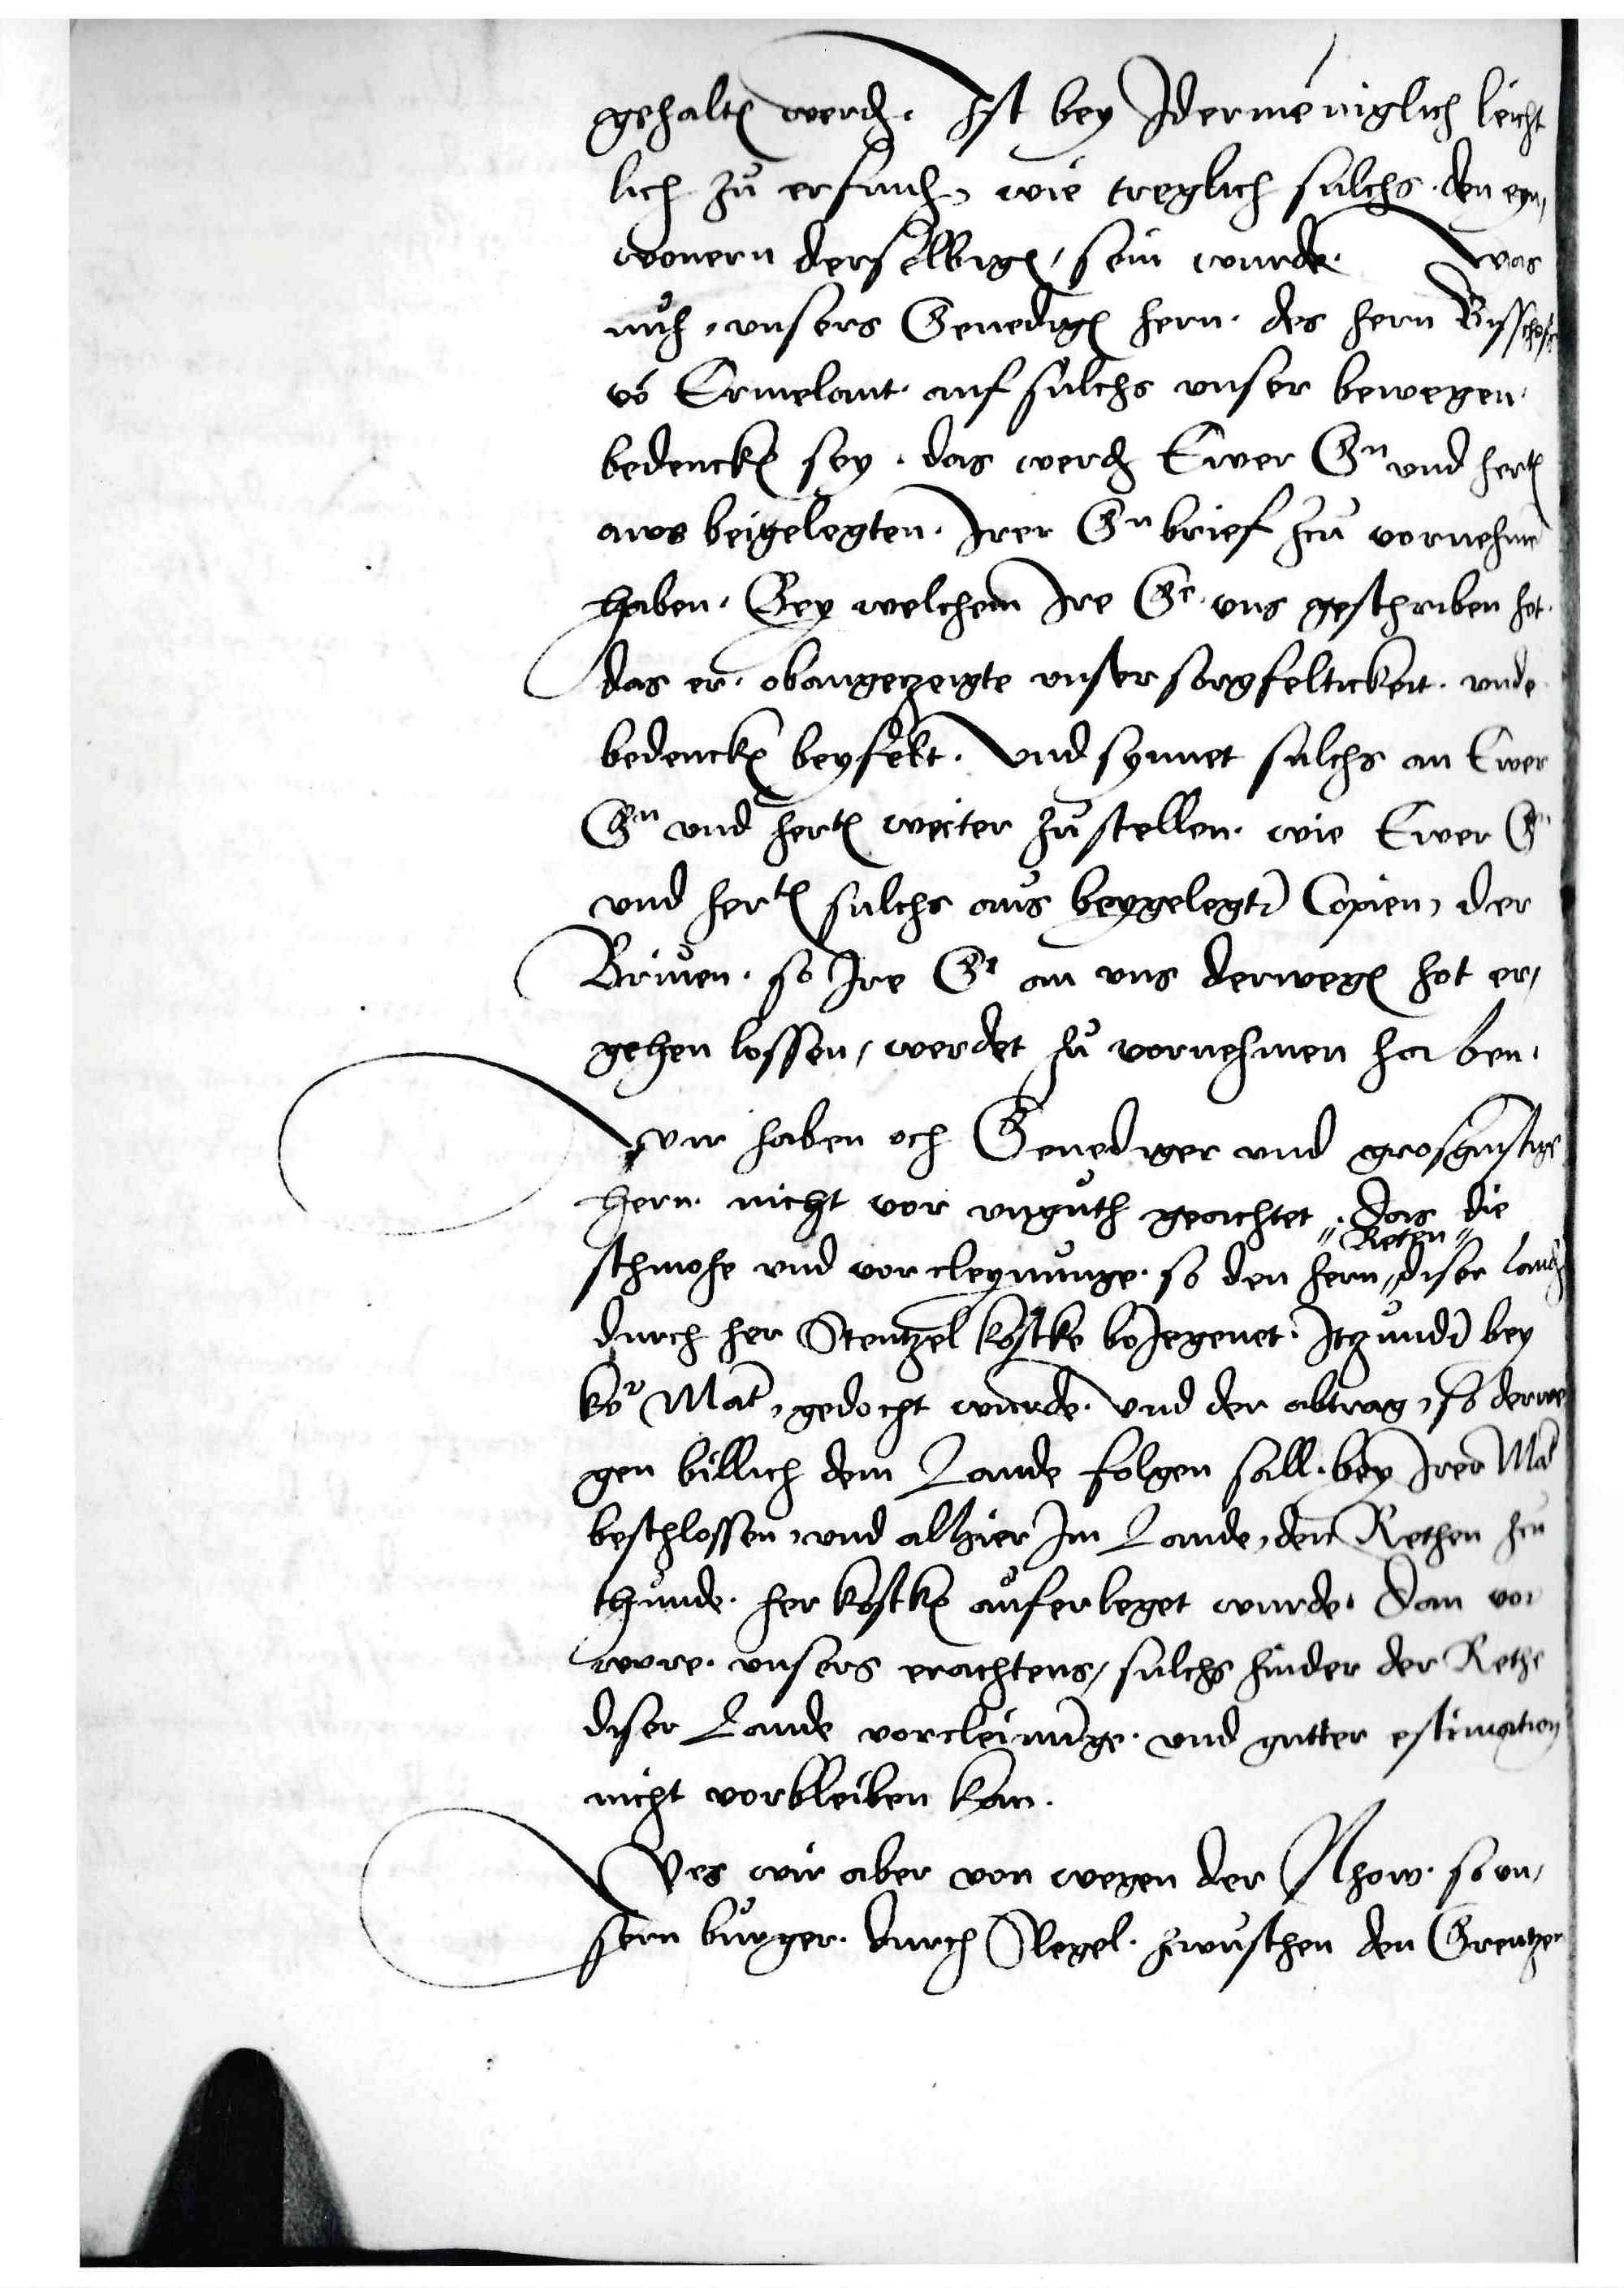 gehaltn werdn. Ist bey Idermeniglich leicht
lich zu erfindn, wie treglich sulchs den eyn,
wonern derselbign, sein wurde. was
nuh, unsers Genedign hern. des hern Bisschofs
vo Ermelant auf sulchs unser bewegen.
bedenckn sey. das werdn Ewer Gn und hertn
aws beigelegten. Irer Gn brief zcu vornehme
haben. Bey welchem Ire Ge. uns geschriben hot.
das er. obangezeigte unser sorgfeltickeit. unde
bedenckn beyfelt. und synnet sulchs an Ewer
Gn und hertn weiter zustellen. wie Ewer Gn
und hertn sulchs aus beygelegtn Copien, der
Briuen. so Ire Ge an uns derwegn hot er,
gehen lossen, werdet zu vornehmen haben.
wir haben och Genediger und grosgunstige
hern. nicht vor unguth geachtet. das die
schmohe und vorcleynunge. so den hern " Reten " diser Landn
durch her Stentzel Kostke bojegenet. Itzundn bey
Kor Mat, gedocht wurde. und der abtrag, so derwe
gen billich dem Lande folgen sall. bey Irer Mat
beschlossen, und alhier Im Lande, den Rethen zcu
thunde. her Kostkn auferleget wurde. dan vor
wore. unsers erachtens, sulchs hinder der Rethe
diser Lande vorcleinunge. und gutter estimation
nicht vorbleiben kan.
Wes wir aber von wegen der Nhow. so un,
sern burger. durch Slegel. zwuschen den Grentzen